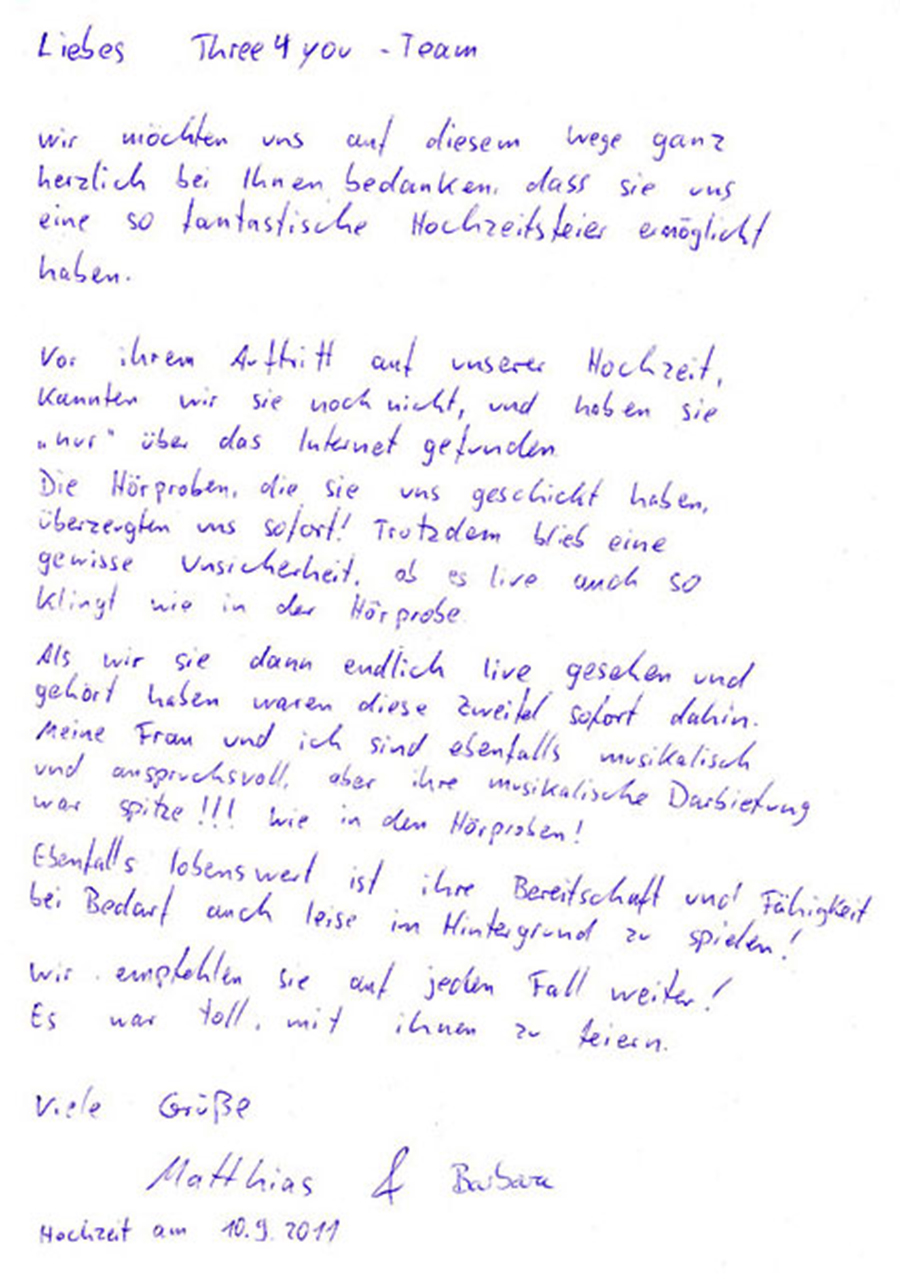 Liebes Three4you - Team
wir möchten uns auf diesem Wege ganz
herzlich bei Ihnen bedanken, dass sie uns
eine so fantastische Hochzeitsfeier ermöglicht
haben.
Vor ihrem Auftritt auf unserer Hochzeit,
kannten wir sie noch nicht, und haben sie
„nur" über das Internet gefunden.
Die Hörproben, die sie uns geschickt haben,
überzeugten uns sofort! Trotzdem blieb eine
gewisse Unsicherheit, ob es live auch so
klingt wie in der Hörprobe.
Als wir sie dann endlich live gesehen und
gehört haben waren diese Zweifel sofort dahin.
Meine Frau und ich sind ebenfalls musikalisch
und anspruchsvoll, aber ihre musikalische Darbietung
war spitze!!! Wie in den Hörproben!
Ebenfalls lobenswert ist ihre Bereitschaft und Fähigkeit
bei Bedarf auch leise im Hintergrund zu spielen!
Wir empfehlen sie auf jeden Fall weiter!
Es war toll, mit ihnen zu feiern.
Viele Grüße
Matthias & Barbara
Hochzeit am 10.9.2011